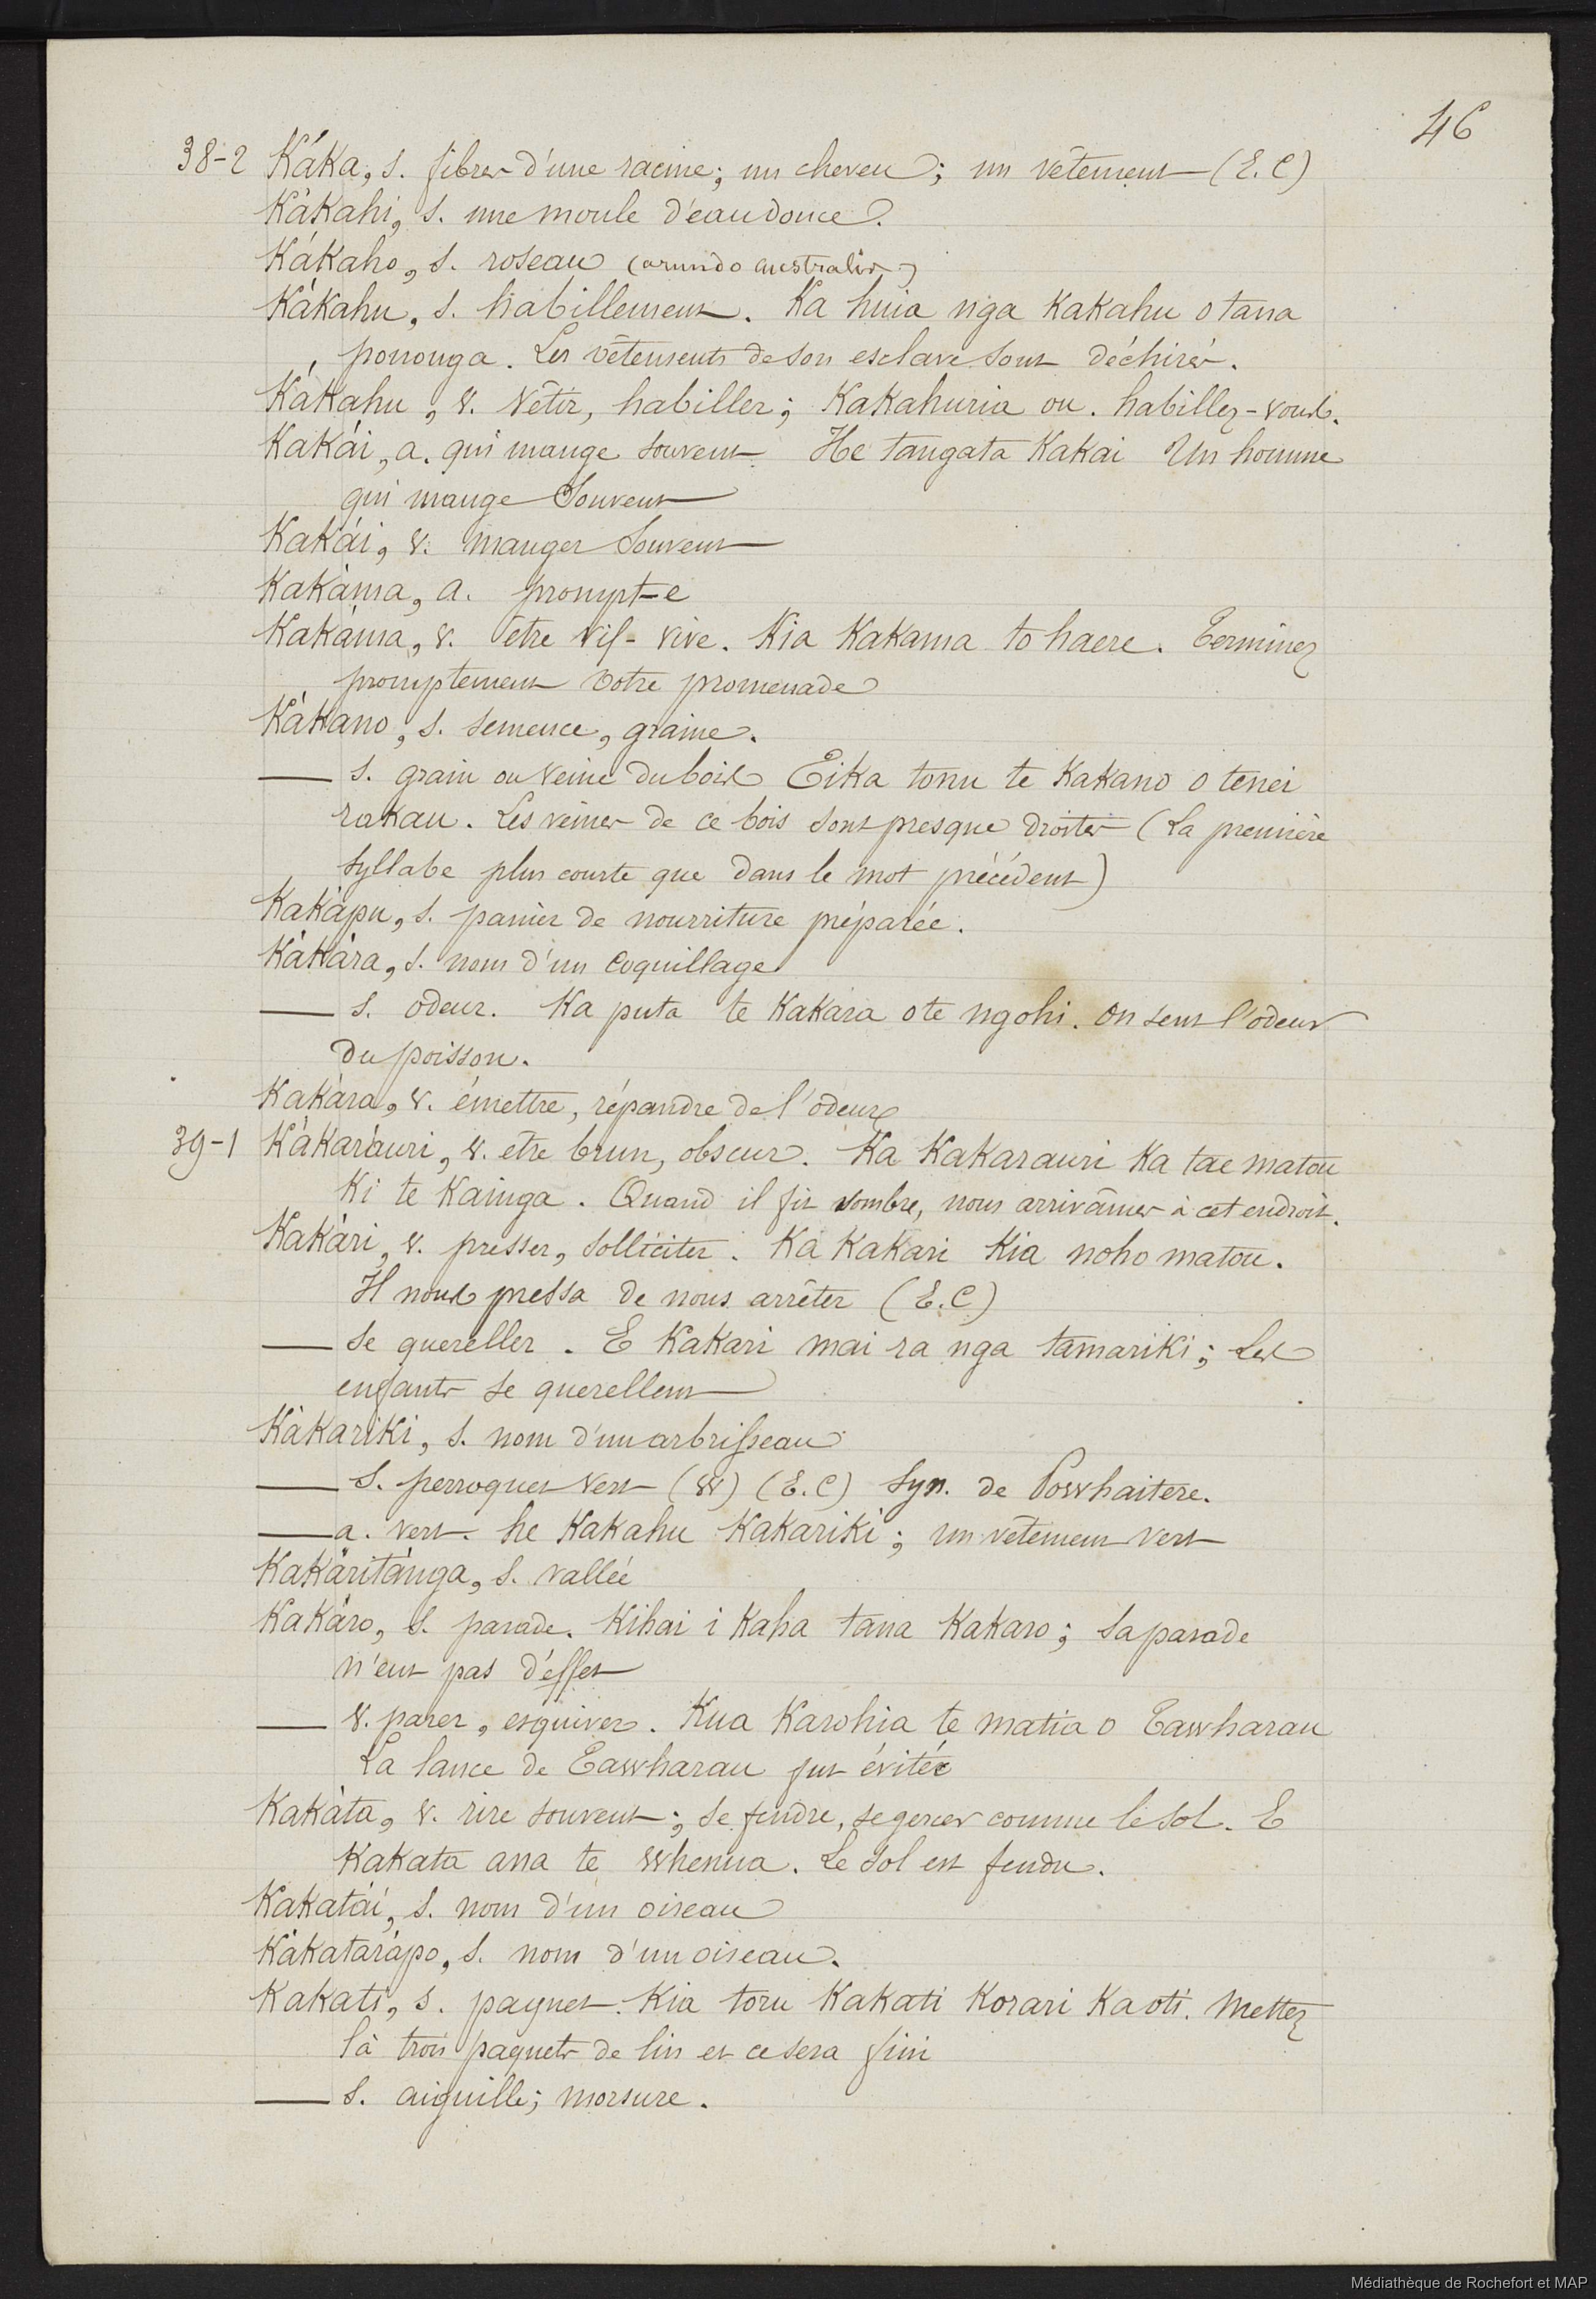 46
38-2 Káka, s. fibres d'une racine; un cheveu; un vêtement (E. C)
Kákahi, s. une moule d'eau douce.
Kákaho, s. roseau (arundo australis)
Kákahu, s. habillement. Ka huia nga Kakahu o tana
pononga. Les vêtements de son esclave sont déchirés.
Kákahu, v. Vêtir, habiller; Kakahuria ou. habillez-vous.
Kakái, a. qui mange souvent He tangata Kakai Un homme
qui mange souvent
Kakái, v. manger souvent
Kakáma, a. prompt-e
Kakáma, v. être vif-vive. Kia Kakama to haere. Terminez
promptement votre promenade
Kákano, s. semence, graine.
— s. grain ou veine du bois Eika tonu te Kakano o tenei
rakau. Les veines de ce bois sont presque droites (La première
syllabe plus courte que dans le mot précédent)
Kakápu, s. panier de nourriture préparée.
Kákára, s. nom d'un coquillage
— s. odeur. Ka puta te Kakara o te ngohi. on sent l'odeur
du poisson.
Kakára, v. émettre, répandre de l'odeur
39-1 Kákaráuri, v. etre brun, obscur. Ka Kakarauri Ka tae matou
Ki te Kainga. Quand il fit sombre, nous arrivâmes à cet endroit.
Kakári, v. presser, solliciter. Ka Kakari Kia noho matou.
Il nous pressa de nous arrêter (E.C)
— se quereller. E Kakari mai ra nga tamariki; Les
enfants se querellent
Kákariki, s. nom d'un arbrisseau
— s. perroquet vert (W) (E.C) Syn. de Powhaitere.
— a. vert. he Kakahu Kakariki; un vêtement vert
Kakáritánga, s. vallée
Kakáro, s. parade. Kihai i Kaha tana Kakaro; sa parade
n'eut pas d'effet
— v. parer, esquiver. Kua Karohia te matia o Tawharau
La lance de Tawharau fut évitée
Kakáta, v. rire souvent; se fendre, se gercer comme le sol. E
Kakata ana te whenua. Le sol est fendu.
Kakatái, s. nom d'un oiseau
Kákatarápo, s. nom d'un oiseau.
Kakati, s. paquet. Kia toru Kakati Korari Ka oti. Mettez
là trois paquets de lin et ce sera fini
— s. aiguille; morsure.
Médiathèque de Rochefort et MAP